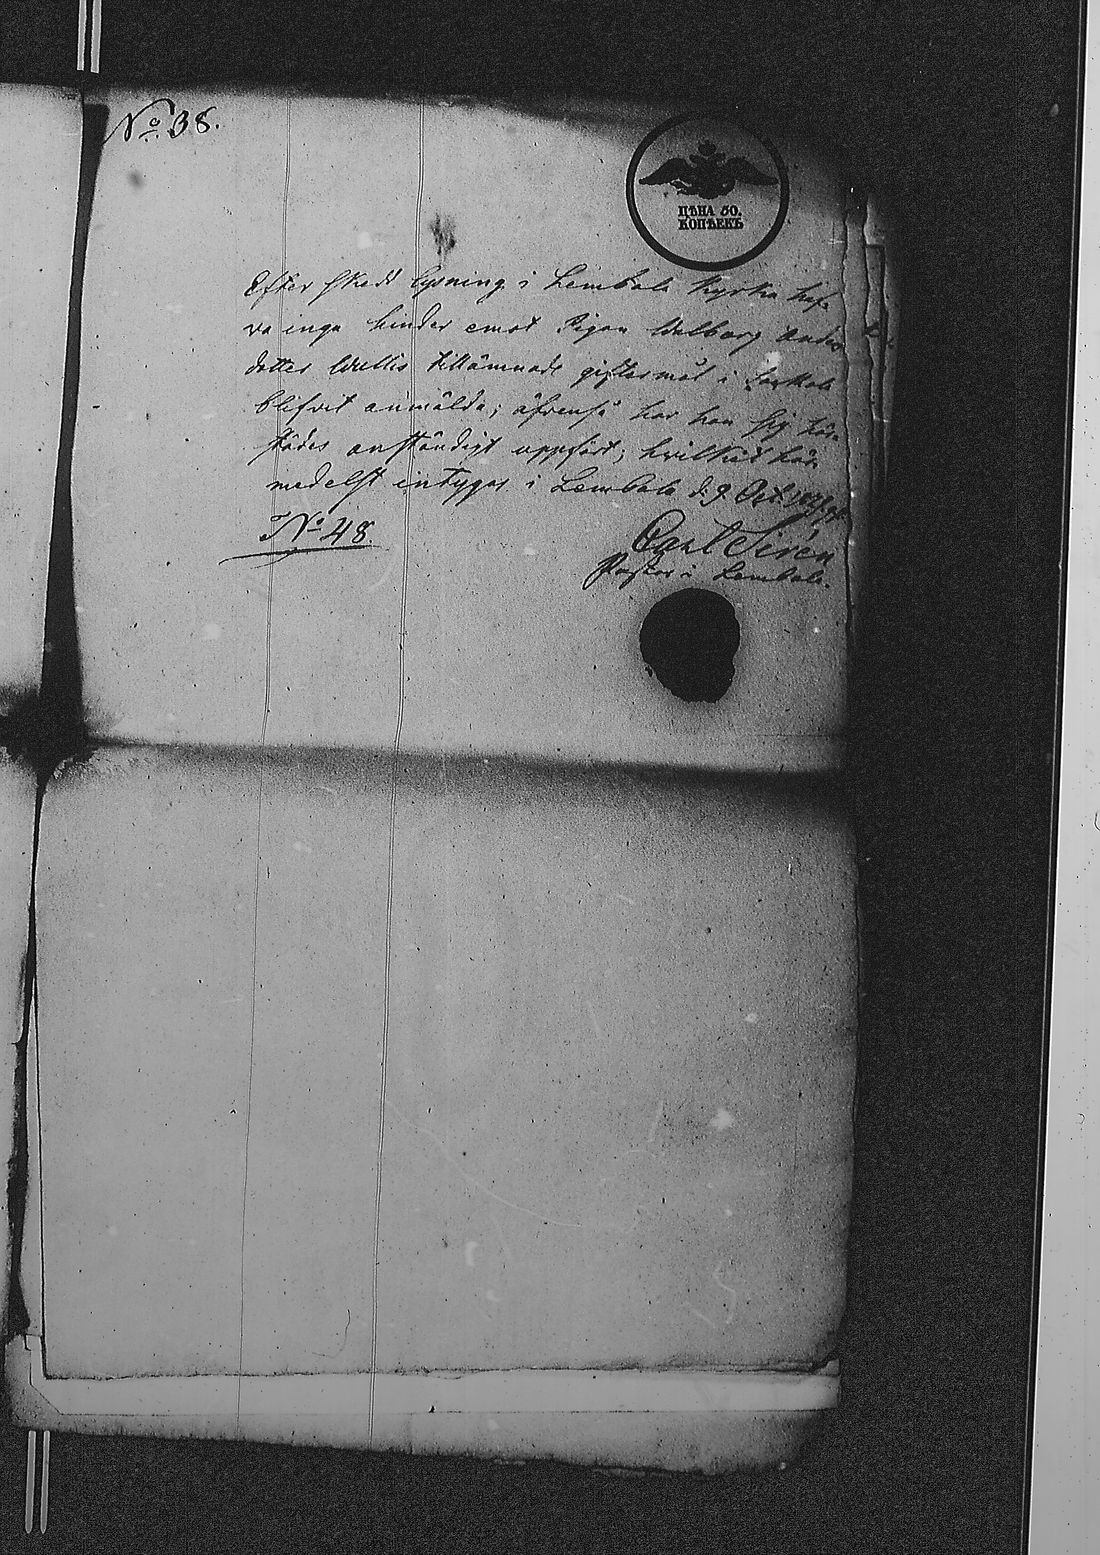 No 38.
ЦѢНА 50.
КОПѢЕКЪ
Efter skedd lysning i Lembala kyrka hafa
va inga hinder emot Pigan Walborg Anders
dotter Wullis tillämnade giftermål i
blifvit anmälda; äfvenså har hon sig här
städes anständigt uppfört; hvilket här
medelst intygas i Lembala d. 9 Oct.
No 48.
Carl Sirén
Pastor i Lembala.